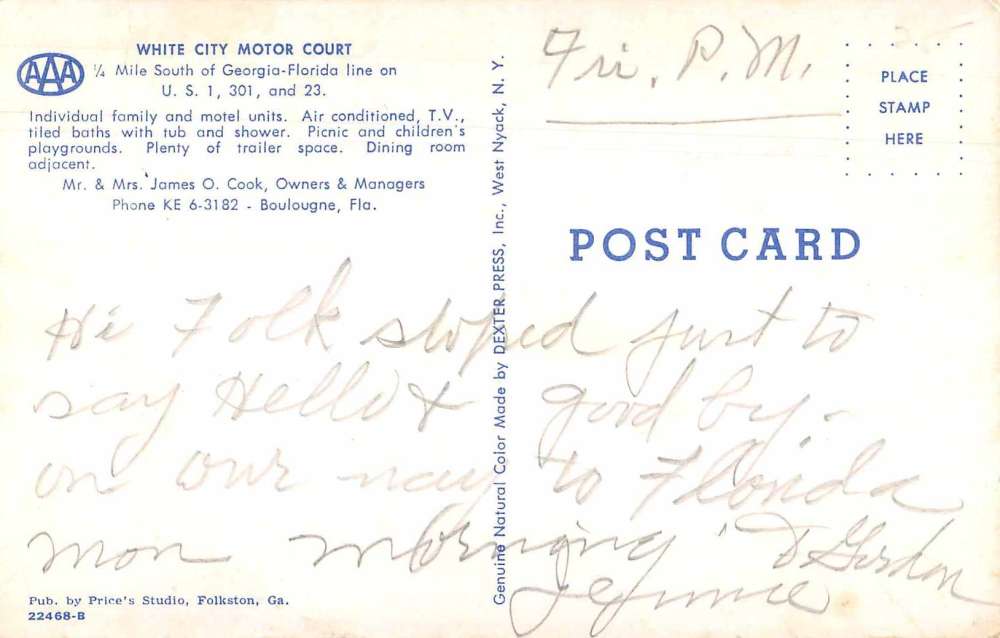 WHITE CITY MOTOR COURT
AAA
¼ Mile South of Georgia-Florida line on
U. S. 1, 301, and 23.
Individual family and motel units. Air conditioned, T.V.,
tiled baths with tub and shower. Picnic and children's
playgrounds. Plenty of trailer space. Dining room
adjacent.
Mr. & Mrs. James O. Cook, Owners & Managers
Phone KE 6-3182 - Boulougne, Fla.
Genuine Natural Color Made by DEXTER PRESS, Inc., West Nyack, N. Y.
Fri. P.M.
PLACE
STAMP
HERE
POST CARD
Hi Folk stoped just to
say Hello & good by -
on our way to Florida
Mon morning Gordon
Pub. by Price's Studio, Folkston, Ga.
22468-B